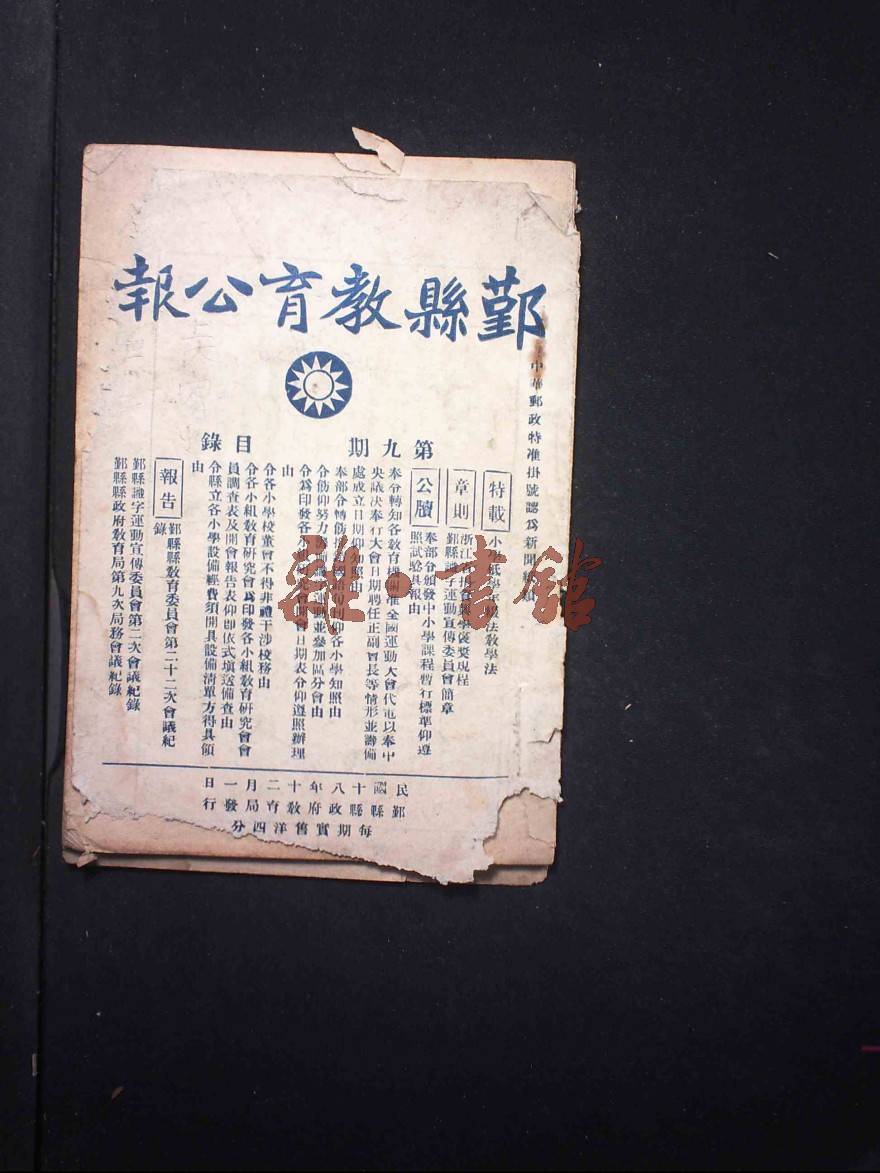 鄞縣教育公報
中華郵政特准掛號認為新聞紙類
第九期
目錄
特載
小學低學年級法教學法
章則
浙江
規程
鄞縣識字運動宣傳委員會簡章
公牘
奉部令頒發中小學課程暫行標準仰遵
照試驗具報由
奉令轉知各教育機關准全國運動大會代電以奉中
央議決奉行大會日期聘任正副會長等情形並籌備
處成立日期仰知照由
奉部令轉飭
仰各小學知照由
令飭仰努力
運動並參加區分會由
令為印發各小
日期表令仰遵照辦理
由
令各小學校董會不得非禮干涉校務由
令各小組教育研究會為印發各小組教育研究會會
員調查表及開會報告表仰即依式填送備查由
令縣立各小學設備經費須開具設備清單方得具領
由
報告
鄞縣縣教育委員會第二十二次會議紀
錄
鄞縣識字運動宣傳委員會第二次會議紀錄
鄞縣縣政府教育局第九次局務會議紀錄
民國十八年十二月一日
鄞縣縣政府教育局發行
每期實售洋四分
雜·書館